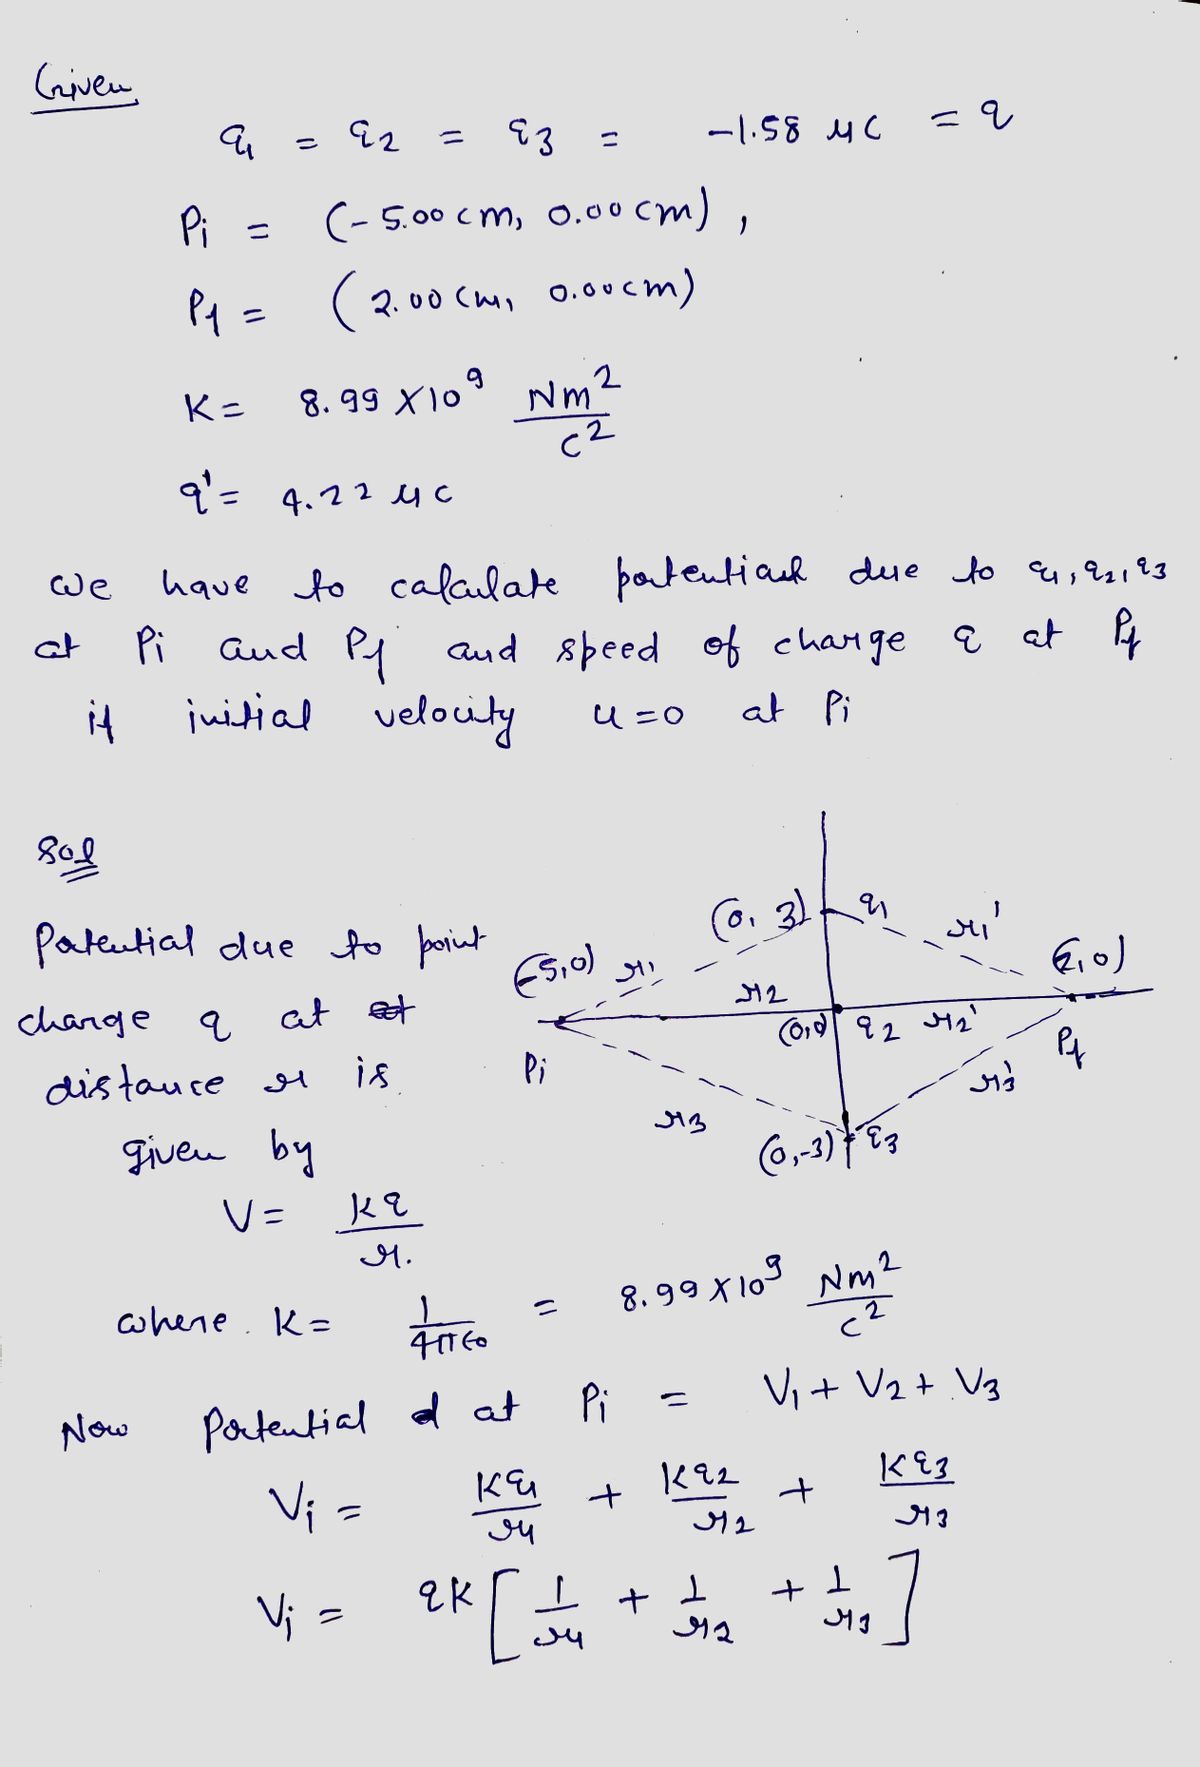 Given
q1 = q2 = q3 = -1.58 μC = q
Pi = (-5.00 cm, 0.00 cm),
Pf = (2.00 cm, 0.00 cm)
K = 8.99 × 10^9 Nm^2/C^2
q' = 4.22 μC
we have to calculate potential due to q1, q2, q3
at Pi and Pf and speed of charge q at Pf
if initial velocity u = 0 at Pi
Sol
Potential due to point
charge q at
distance r is
given by
V = Kq/r.
where K = 1/4πϵ0 = 8.99 × 10^9 Nm^2/C^2
(0, 3) q1 r1'
(-5,0) r1 (2,0)
r2 (0,0) q2 r2'
Pi Pf
r3 r3'
(0,-3) q3
Now Potential at Pi = V1 + V2 + V3
Vi = Kq1/r1 + Kq2/r2 + Kq3/r3
Vi = qK [1/r1 + 1/r2 + 1/r3]